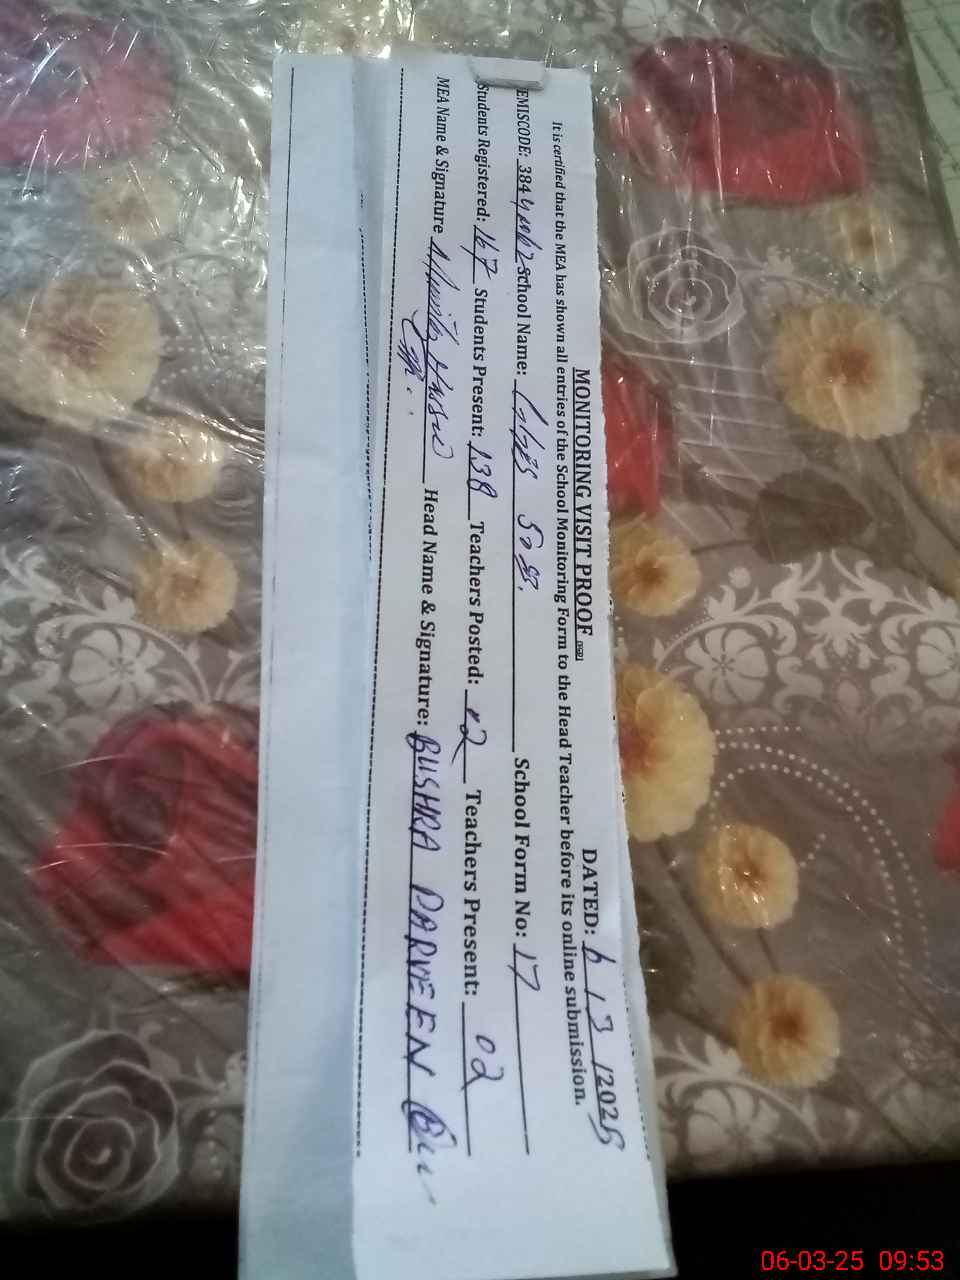 MONITORING VISIT PROOF DATED: 6 / 3 /2025
It is certified that the MEA has shown all entries of the School Monitoring Form to the Head Teacher before its online submission.
EMISCODE: School Name: School Form No: 17
Students Registered: 167 Students Present: 138 Teachers Posted: 02 Teachers Present: 02
MEA Name & Signature Head Name & Signature: BUSHRA PARVEEN
06-03-25 09:53